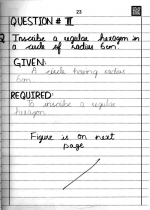 23
QUESTION # III
Q Inscribe a regular hexagon in
a circle of radius 6cm.
GIVEN:
A circle having radius
6cm
REQUIRED:
To inscribe a regular
hexagon
Figure is on next
page